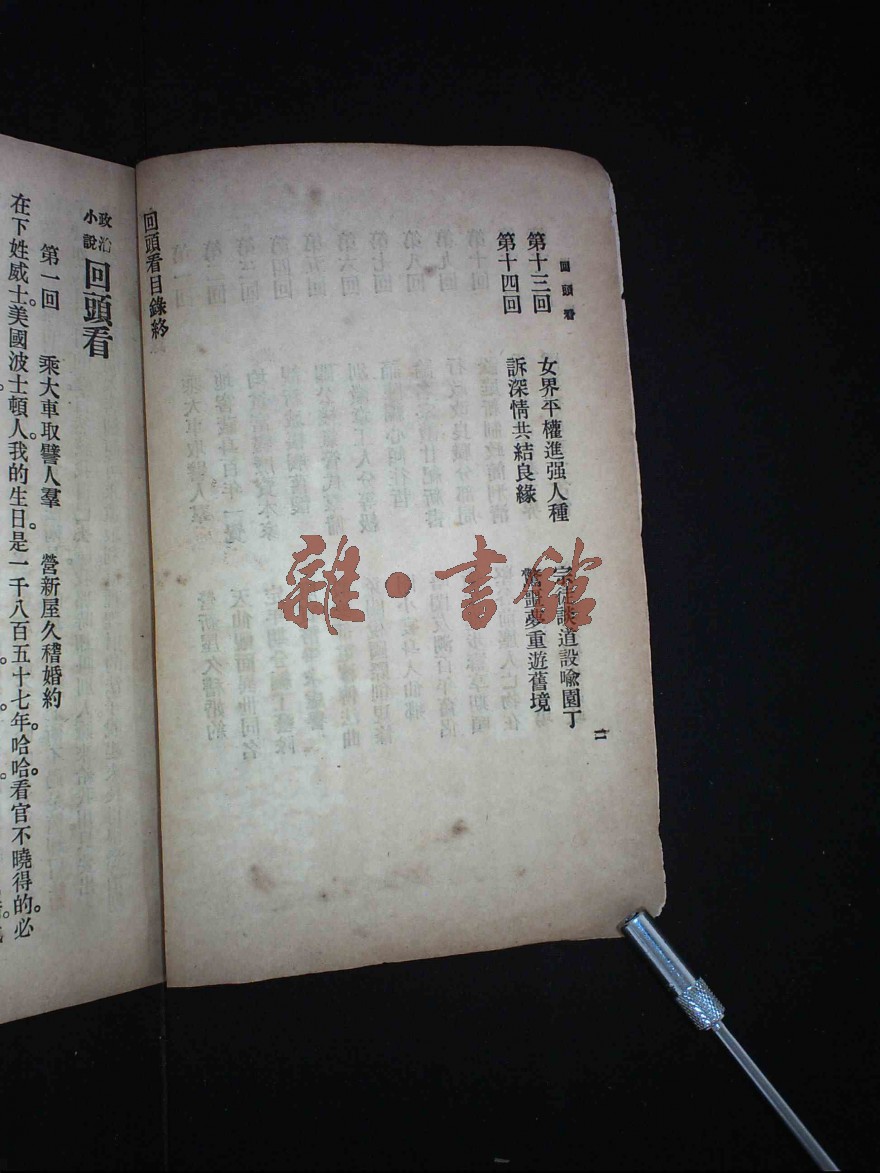 回頭看
第十三回 女界平權進强人種 宗術談道設喩園丁
第十四回 訴深情共結良緣 驚噩夢重遊舊境
二
回頭看目錄終
政治小說 回頭看
第一回 乘大車取譬人羣 營新屋久稽婚約
在下姓威士。美國波士頓人。我的生日是一千八百五十七年。哈哈。看官不曉得的。必
雜·書館